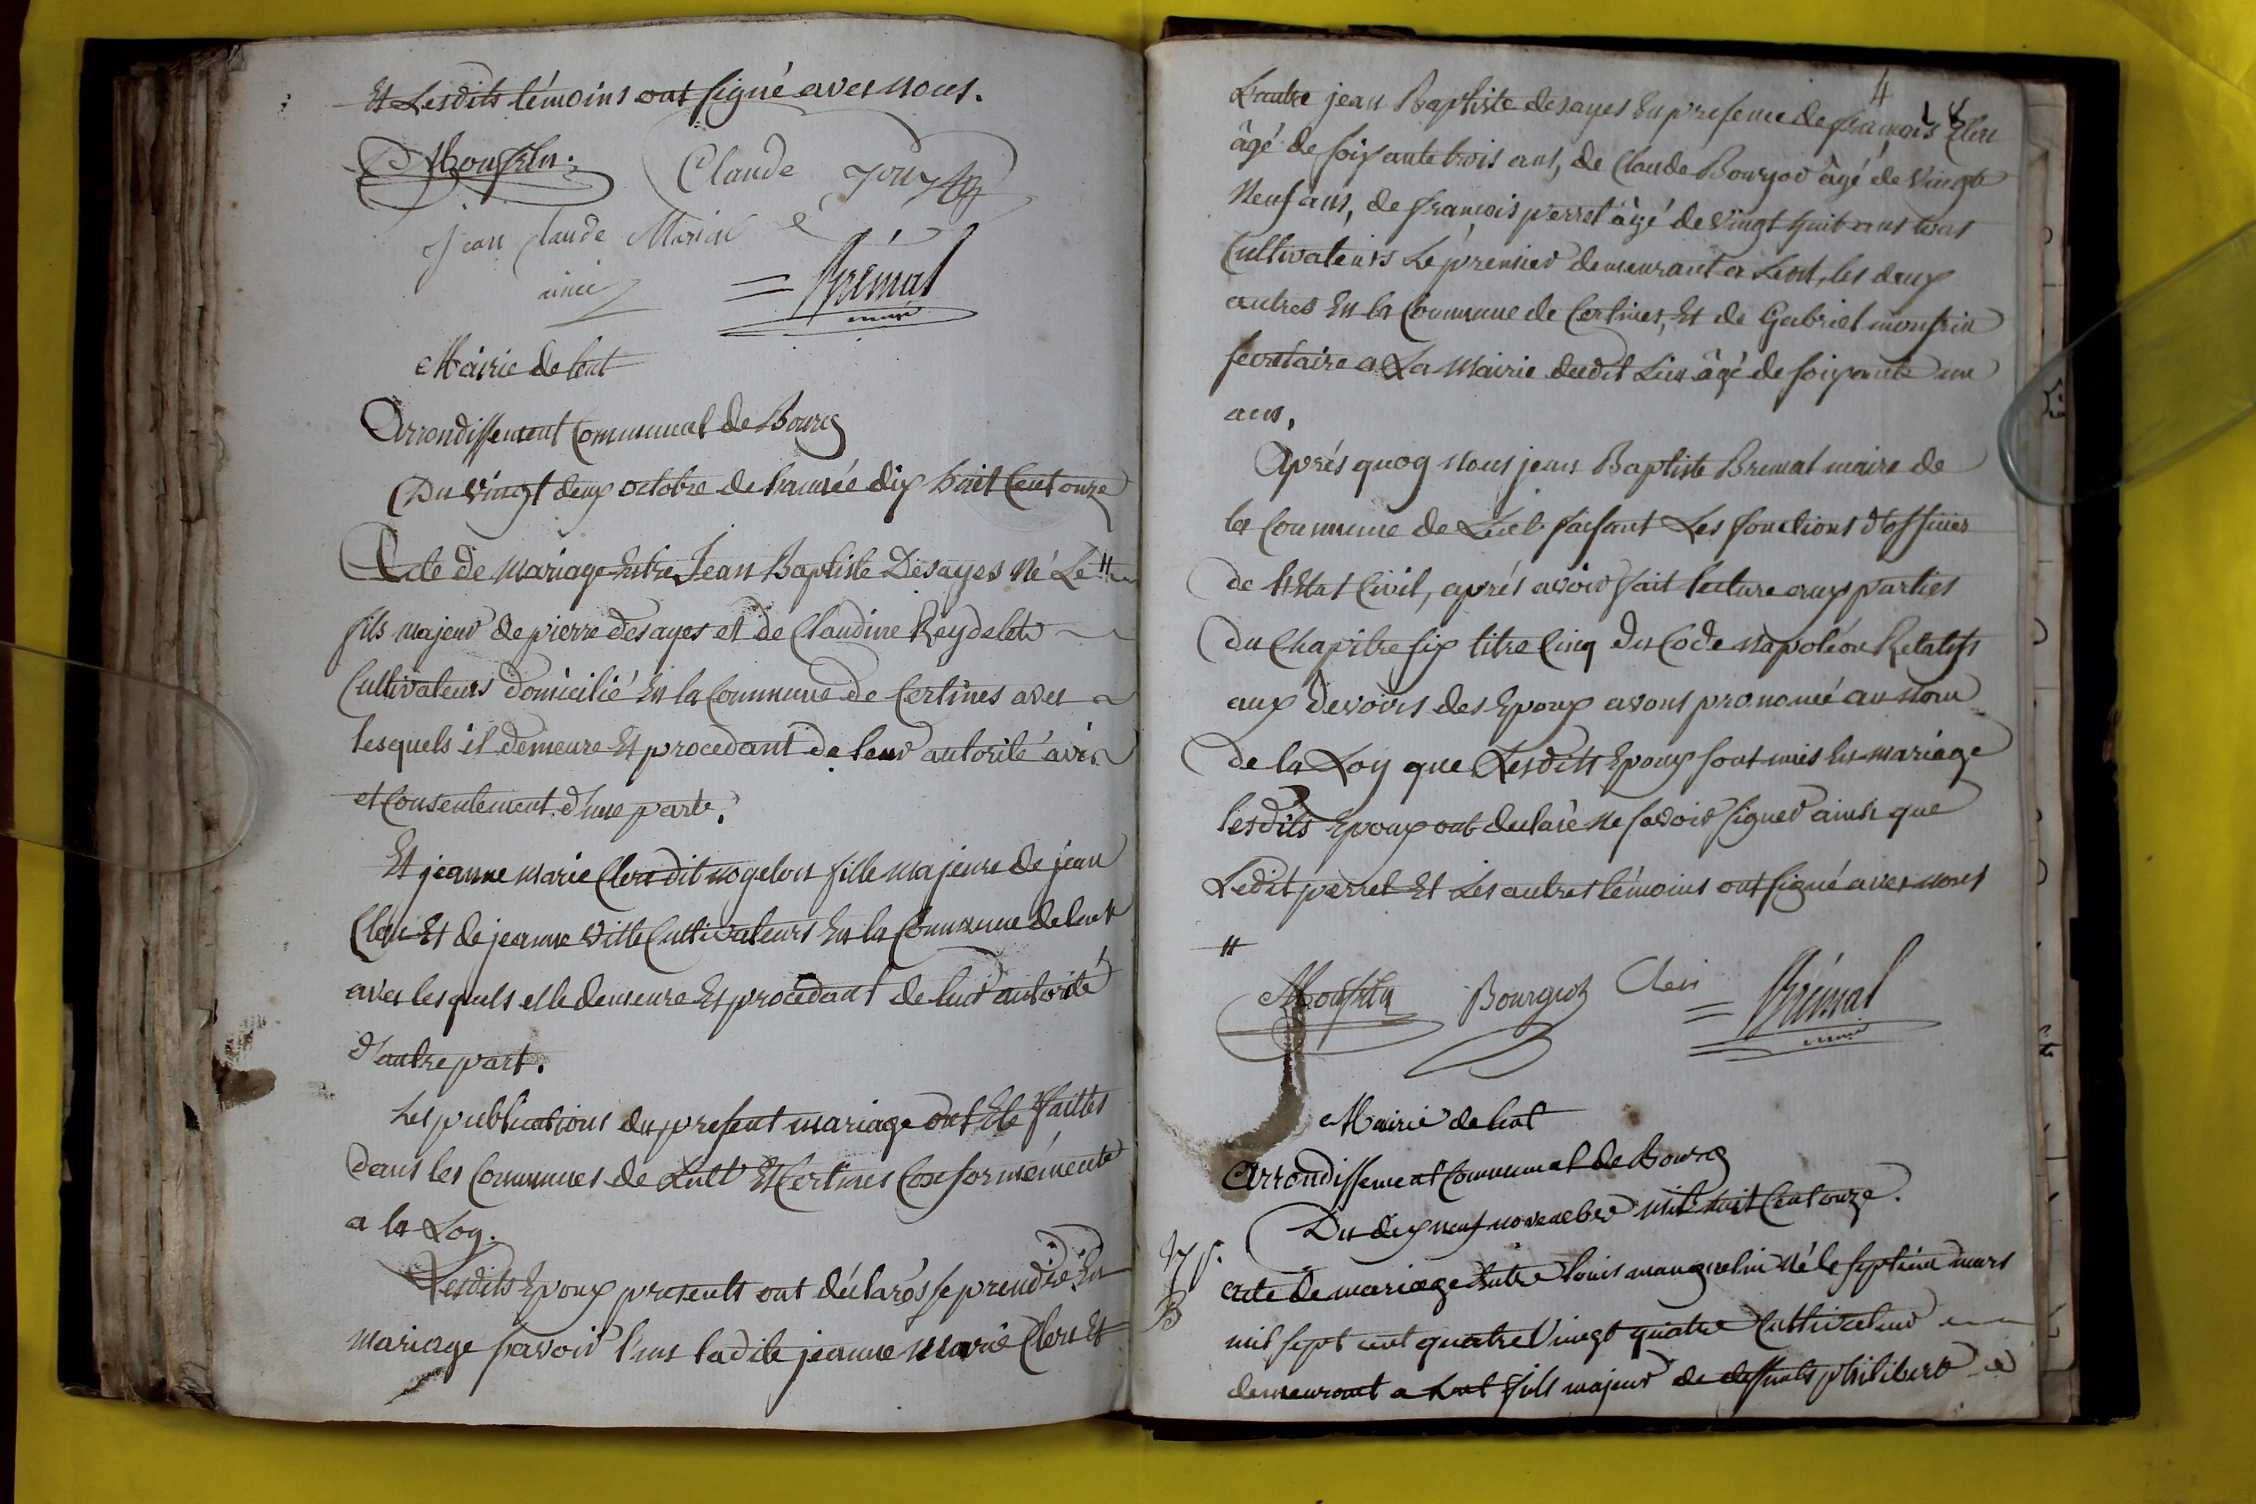 Et Lesdits témoins ont signé avec nous.
Monfrin
Claude
jean Claude
ainé
= Brémal
maire
Mairie de lent
Arrondissement Communal de Bourg
Du vingt deux octobre de l'année dix huit Cent onze
Acte de Mariage Entre Jean Baptiste Desayes Né Le #
fils majeur de pierre desayes et de Claudine Reydelet
Cultivateurs domicilié En la Commune de Certines avec
lesquels il demeure Et procedant de leur autorité avis
et Consentement d'une part.
Et jeanne marie Clerc dit nogelon fille majeure de jean
Clerc Et de jeanne Ville Cultivateurs En la Commune de lent
avec lesquels elle demeure Et procedant de leur autorité
d'autre part.
Les publications du present mariage ont Eté faittes
dans les Communes de Lent Et Certines Conformémente
a la Loy.
Lesdits Epoux presents ont déclarés se prendre En
mariage savoir l'un ladite jeanne Marie Clerc Et
4
18
L'autre jean Baptiste desayes En presence de françois Clerc
âgé de soixante trois ans, de Claude Bourgod âgé de vingt
Neuf ans, de françois perret âgé de vingt huit ans tous
Cultivateurs Le premier demeurant a Lent, les deux
autres En la Commune de Certines, Et de Gabriel monfrin
secretaire a La Mairie dudit Lieu âgé de soixante un
ans,
Après quoy Nous jean Baptiste Bremal maire de
la Commune de Lent faisant Les fonctions d'officier
de l'Etat Civil, après avoir fait lecture aux parties
du Chapitre six titre Cinq du Code Napoléon Relatifs
aux devoirs des Epoux avons prononcé au Nom
de la Loy que Lesdits Epoux sont unis En mariage
lesdits Epoux ont declaré Ne savoir signer ainsi que
Ledit perret Et Les autres témoins ont signé avec nous
#
Monfrin Bourgod Clerc = Brémal
maire
Mairie de lent
Arrondissement Communal de Bourg
Du dix neuf novembre mil huit Cent onze.
B
acte de mariage Entre louis manguelin Né le septieme mars
mil sept cent quatre Vingt quatre Cultivateur
demeurant a Lent fils majeur de deffunts philibert